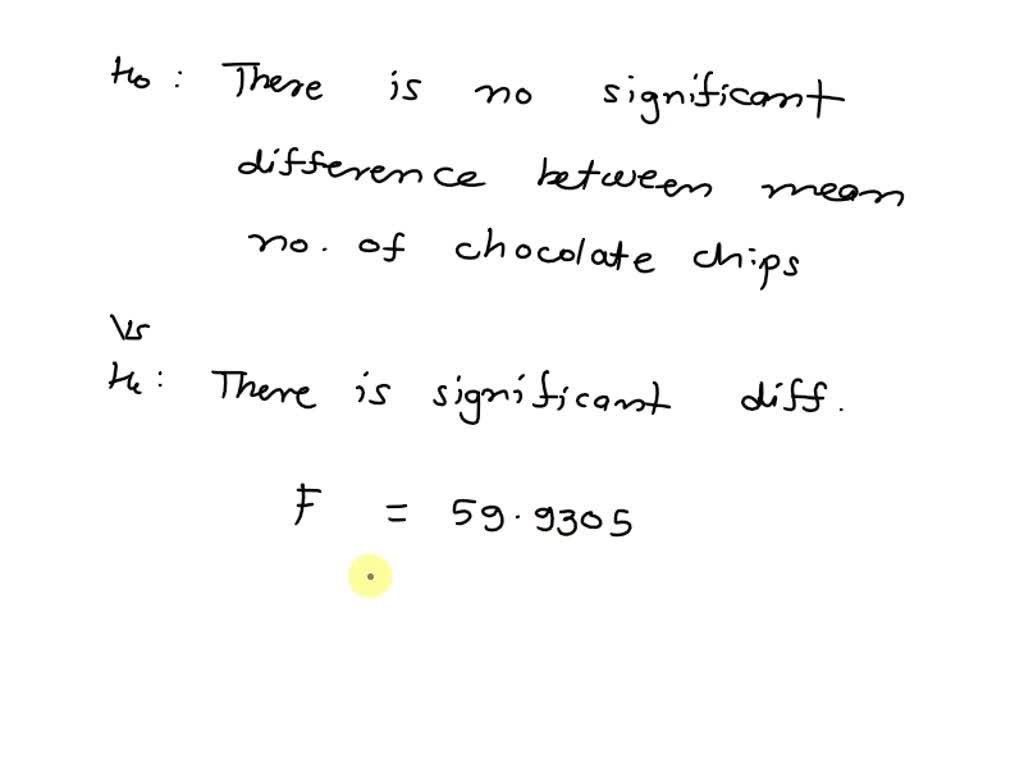 H₀ : There is no significant
difference between mean
no. of chocolate chips
Vs
H₁ : There is significant diff.
F = 59.9305